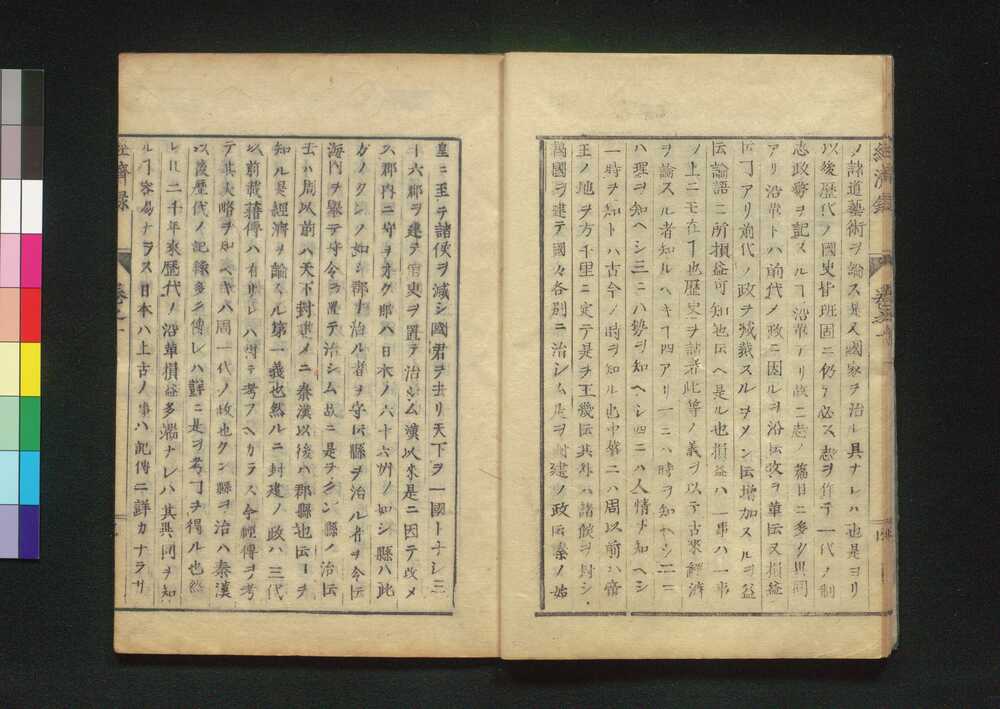 ノ諸道藝術ヲ論ス是又國家ヲ治ル具ナレハ也是ヨリ
以後歴代ノ國史皆班固ニ仍テ必ス志ヲ作テ一代ノ制
志政務ヲ記スルヿ沿革アリ故ニ志ノ篇目ニ多少異同
アリ沿革トハ前代ノ政ニ因ルヲ沿云改ヲ革云又損益
云ヿアリ前代ノ政ヲ減裁スルヲメン云増加スルヲ益
云論語ニ所損益可知也云ヘ是ル也損益ハ一事ハ一事
ノ上ニモ在ヿ也歴史ヲ読者此等ノ義ヲ以テ古来經濟
ヲ論スル者知ルヘキヿ四アリ一ニハ時ヲ知ヘシ二ニ
ハ理ヲ知ヘシ三ニハ勢ヲ知ヘシ四ニハ人情ヲ知ヘシ
一時ヲ知トハ古今ノ時ヲ知ル也中華ニハ周以前ハ帝
王ノ地ヲ方千里ニ定テ是ヲ王畿云其外ハ諸侯ヲ封シ
萬國ヲ建テ國々各別ニ治シム是ヲ封建ノ政云秦ノ始
經濟録
巻之一
皇ニ至テ諸侯ヲ滅シ國君ヲ去リ天下ヲ一國トナシ三
十六郡ヲ建テ官吏ヲ置テ治シム漢以來是ニ因テ改メ
ス郡内ニ守ヲ置ク郡ハ日本ノ六十六州ノ如シ縣ハ此
方ノ郡ノ如シ郡ヲ治ル者ヲ守云縣ヲ治ル者ヲ令云
海内ヲ擧テ守令ヲ置テ治シム故ニ是ヲクン縣ノ治云
去ハ周以前ハ天下封建メニ秦漢以後ハ郡縣也云ヿヲ
知ル是經濟ヲ論スル第一義也然ルニ封建ノ政ハ三代
以前載籍傳ハ有リシハ得テ考フヘカラス今經傳ヲ考
テ其大略ヲ知ヘキハ周一代ノ政也クン縣ヲ治ハ秦漢
以後歴代ノ記録多ク傳レハ詳ニ是ヲ考ヿヲ得ル也然
レ𪜈二千年來歴代ノ沿革損益多端ナレハ其異同ヲ知
ルヿ容易ナラス日本ハ上古ノ事ハ記傳ニ詳カナラサ
經濟録
巻之一